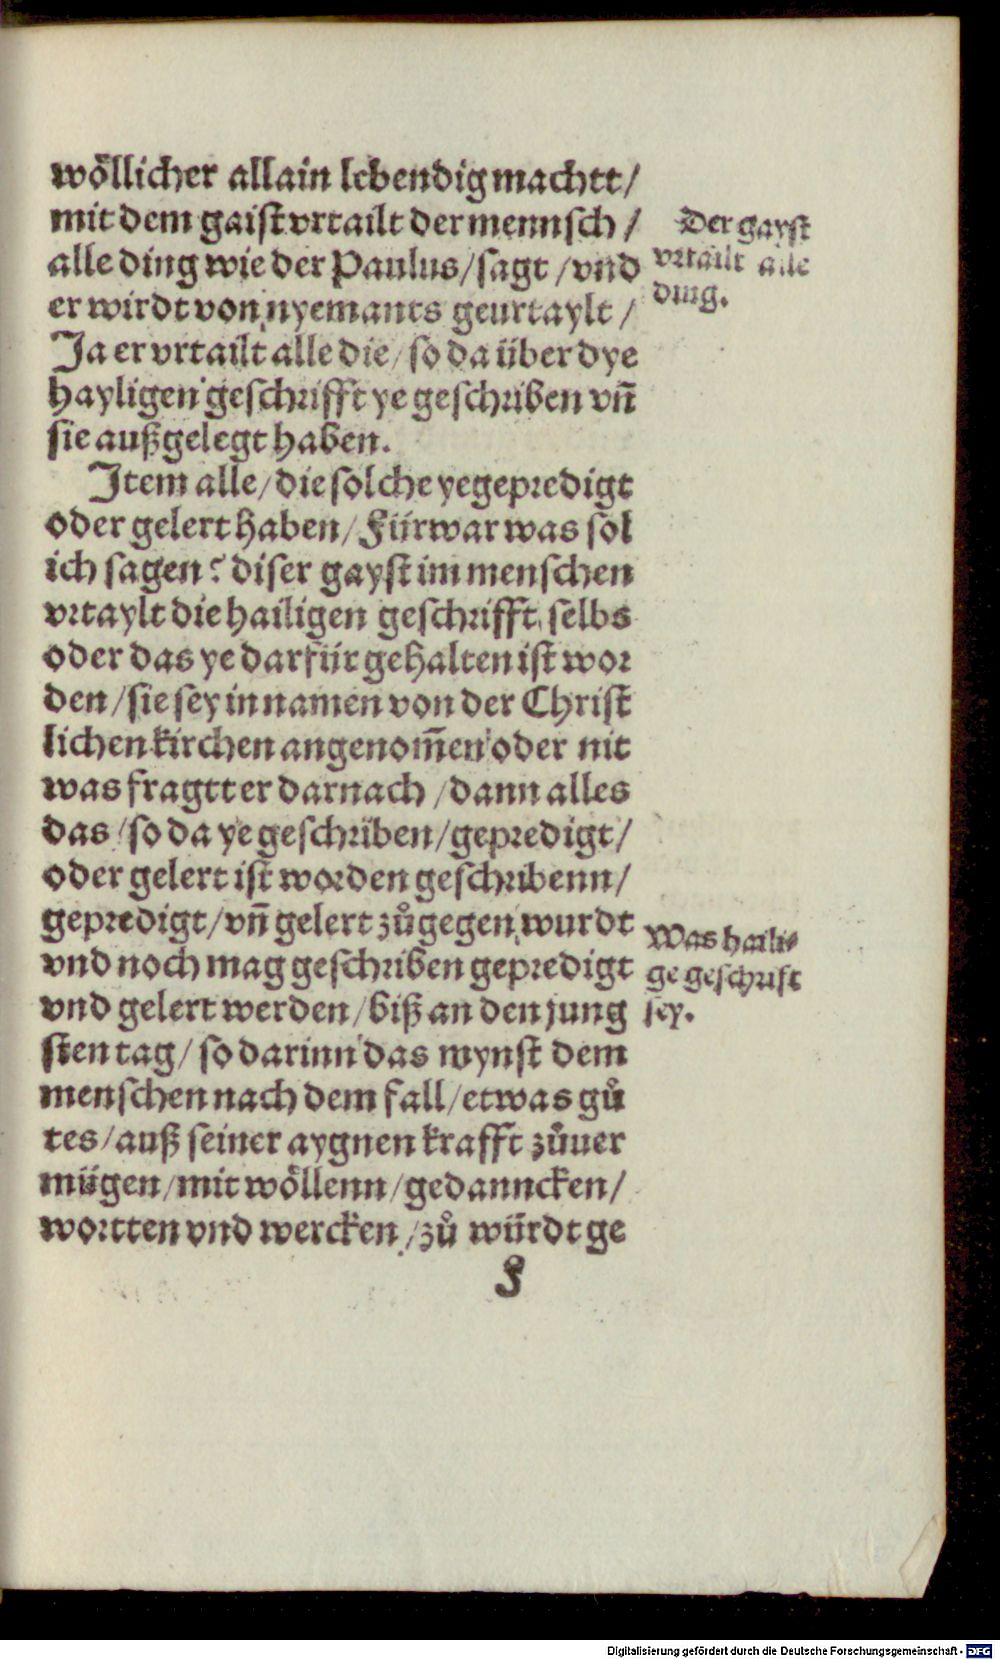 wöllicher allain lebendig machtt/
mit dem gaist vrtailt der mennsch /
alle ding wie der Paulus/sagt /vnd
er wirdt von nyemants geurtaylt /
Ja er vrtailt alle die/so da über dye
hayligen geschrifft ye geschriben vñ
sie außgelegt haben.
Item alle/die solche yegepredigt
oder gelert haben/Fürwar was sol
ich sagen? diser gayst im menschen
vrtaylt die hailigen geschrifft selbs
oder das ye darfür gehalten ist wor
den/sie sey in namen von der Christ
lichen kirchen angenom̃en oder nit
was fragtt er darnach /dann alles
das/so da ye geschriben/gepredigt/
oder gelert ist worden geschribenn/
gepredigt/vñ gelert zůgegen wurdt
vnd noch mag geschriben gepredigt
vnd gelert werden/biß an den jung
sten tag/ so darinn das mynst dem
menschen nach dem fall/etwas gů
tes/auß seiner aygnen krafft zůuer
mügen/mit wöllenn/gedanncken/
wortten vnd wercken/zů würdt ge
F
Der gayst
vrtailt alle
ding.
Was haili⸗
ge geschrift
sey.
Digitalisierung gefördert durch die Deutsche Forschungsgemeinschaft - DFG